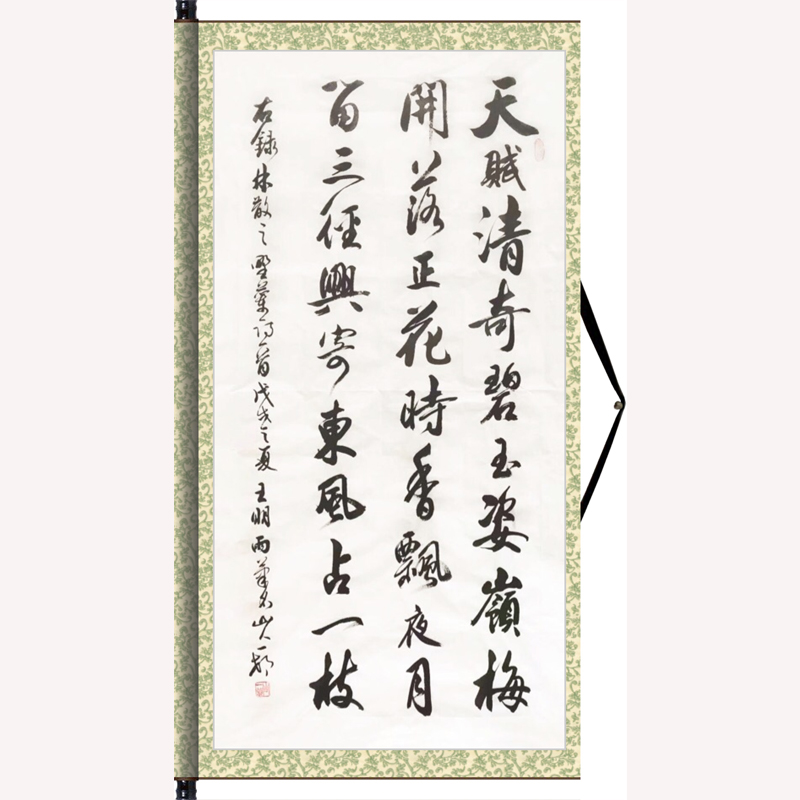 天賦清奇碧玉姿嶺梅
開落正花時香飄夜月
留三徑興寄東風占一枝
右錄林散之墅蘭詩一首戊戌之夏王明雨